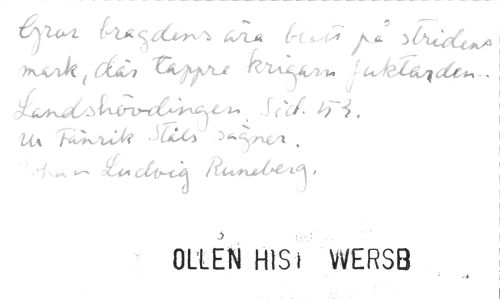 Gror bragdens ära blott på stridens
mark, där tappre krigarn fuktar den.
Landshövdingen. Sid. 53.
Ur Fänrik Ståls sägner.
Johan Ludvig Runeberg.
OLLEN HIST WERSB